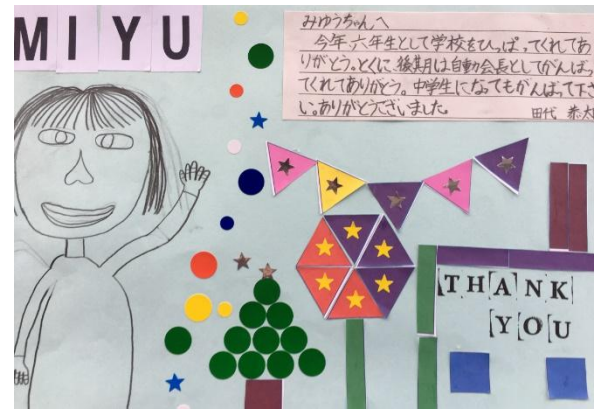 MIYU
みゆうちゃんへ
今年、六年生として学校をひっぱってくれてあ
りがとう。とくに、後期は自動会長としてがんばっ
てくれてありがとう。中学生になってもがんばって下さ
い。ありがとうございました。
田代
THANK
YOU